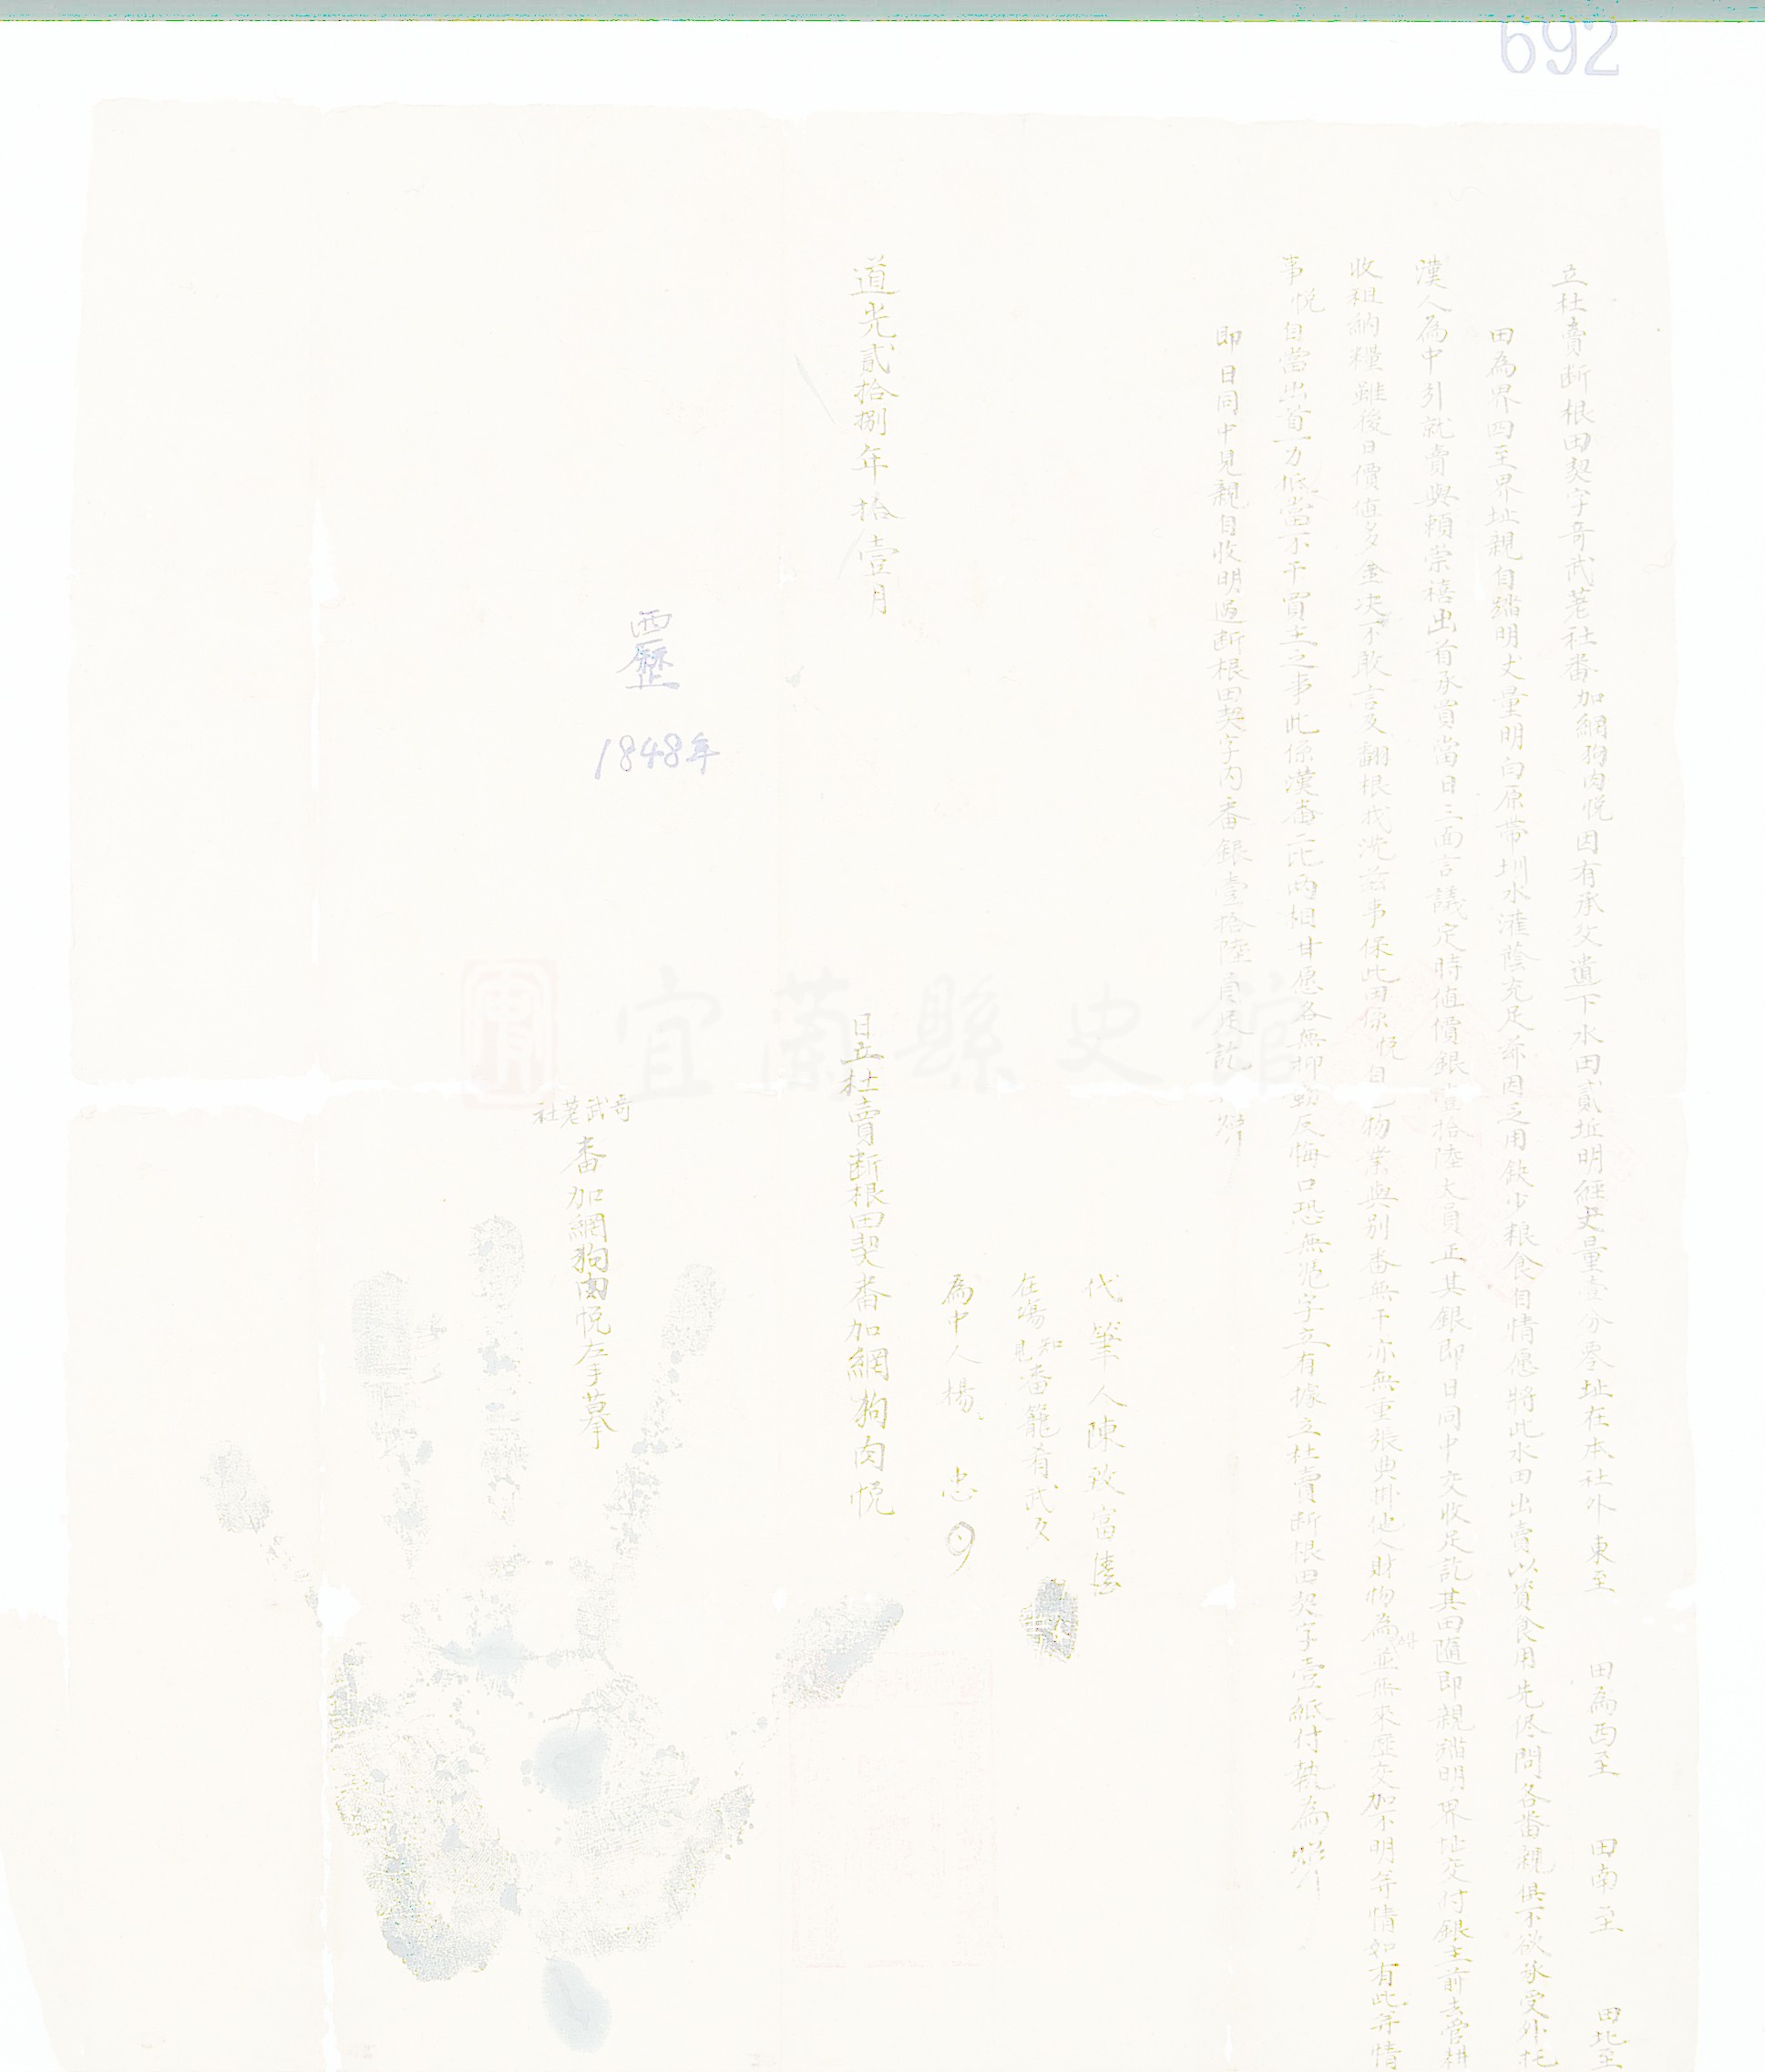 692
立杜賣断根田契字奇武荖社番加網狗肉悅因有承父遺下水田貳坵明經丈量壹分零址在本社外東至 田為西至 田南至 田北至
田為界四至界址親自踏明丈量明白原帶圳水灌蔭充足茲因乏用飲少粮食自情愿將此水田出賣以資食用先侭問各番親俱不欲承受外托
漢人為中引就賣與賴崇禧出首承買當日三面言議定時值價銀壹拾陸大員正其銀即日同中交收足訖其田隨即親踏明界址交付銀主前去管耕
收租納糧雖後日價值多金决不敢言及翻根找洗茲事保此田係悅自己物業與別番無干亦無重張典掛他人財物為並無來歷交加不明等情如有此等情
事悅自當出首一力抵當不干買主之事此係漢番二比両相甘愿各無抑勒反悔口恐無憑字立有據立杜賣断根田契字壹紙付執為炤
即日同中見親自收明過断根田契字內番銀壹拾陸員足訖炤
代筆人陳致富
在塲知見番籠肴武久
為中人楊忠
道光貳拾捌年拾壹月 日立杜賣断根田契番加網狗肉悅
西歷
1848年
奇武荖社
番加網狗肉悅左手摹
宜蘭縣史館